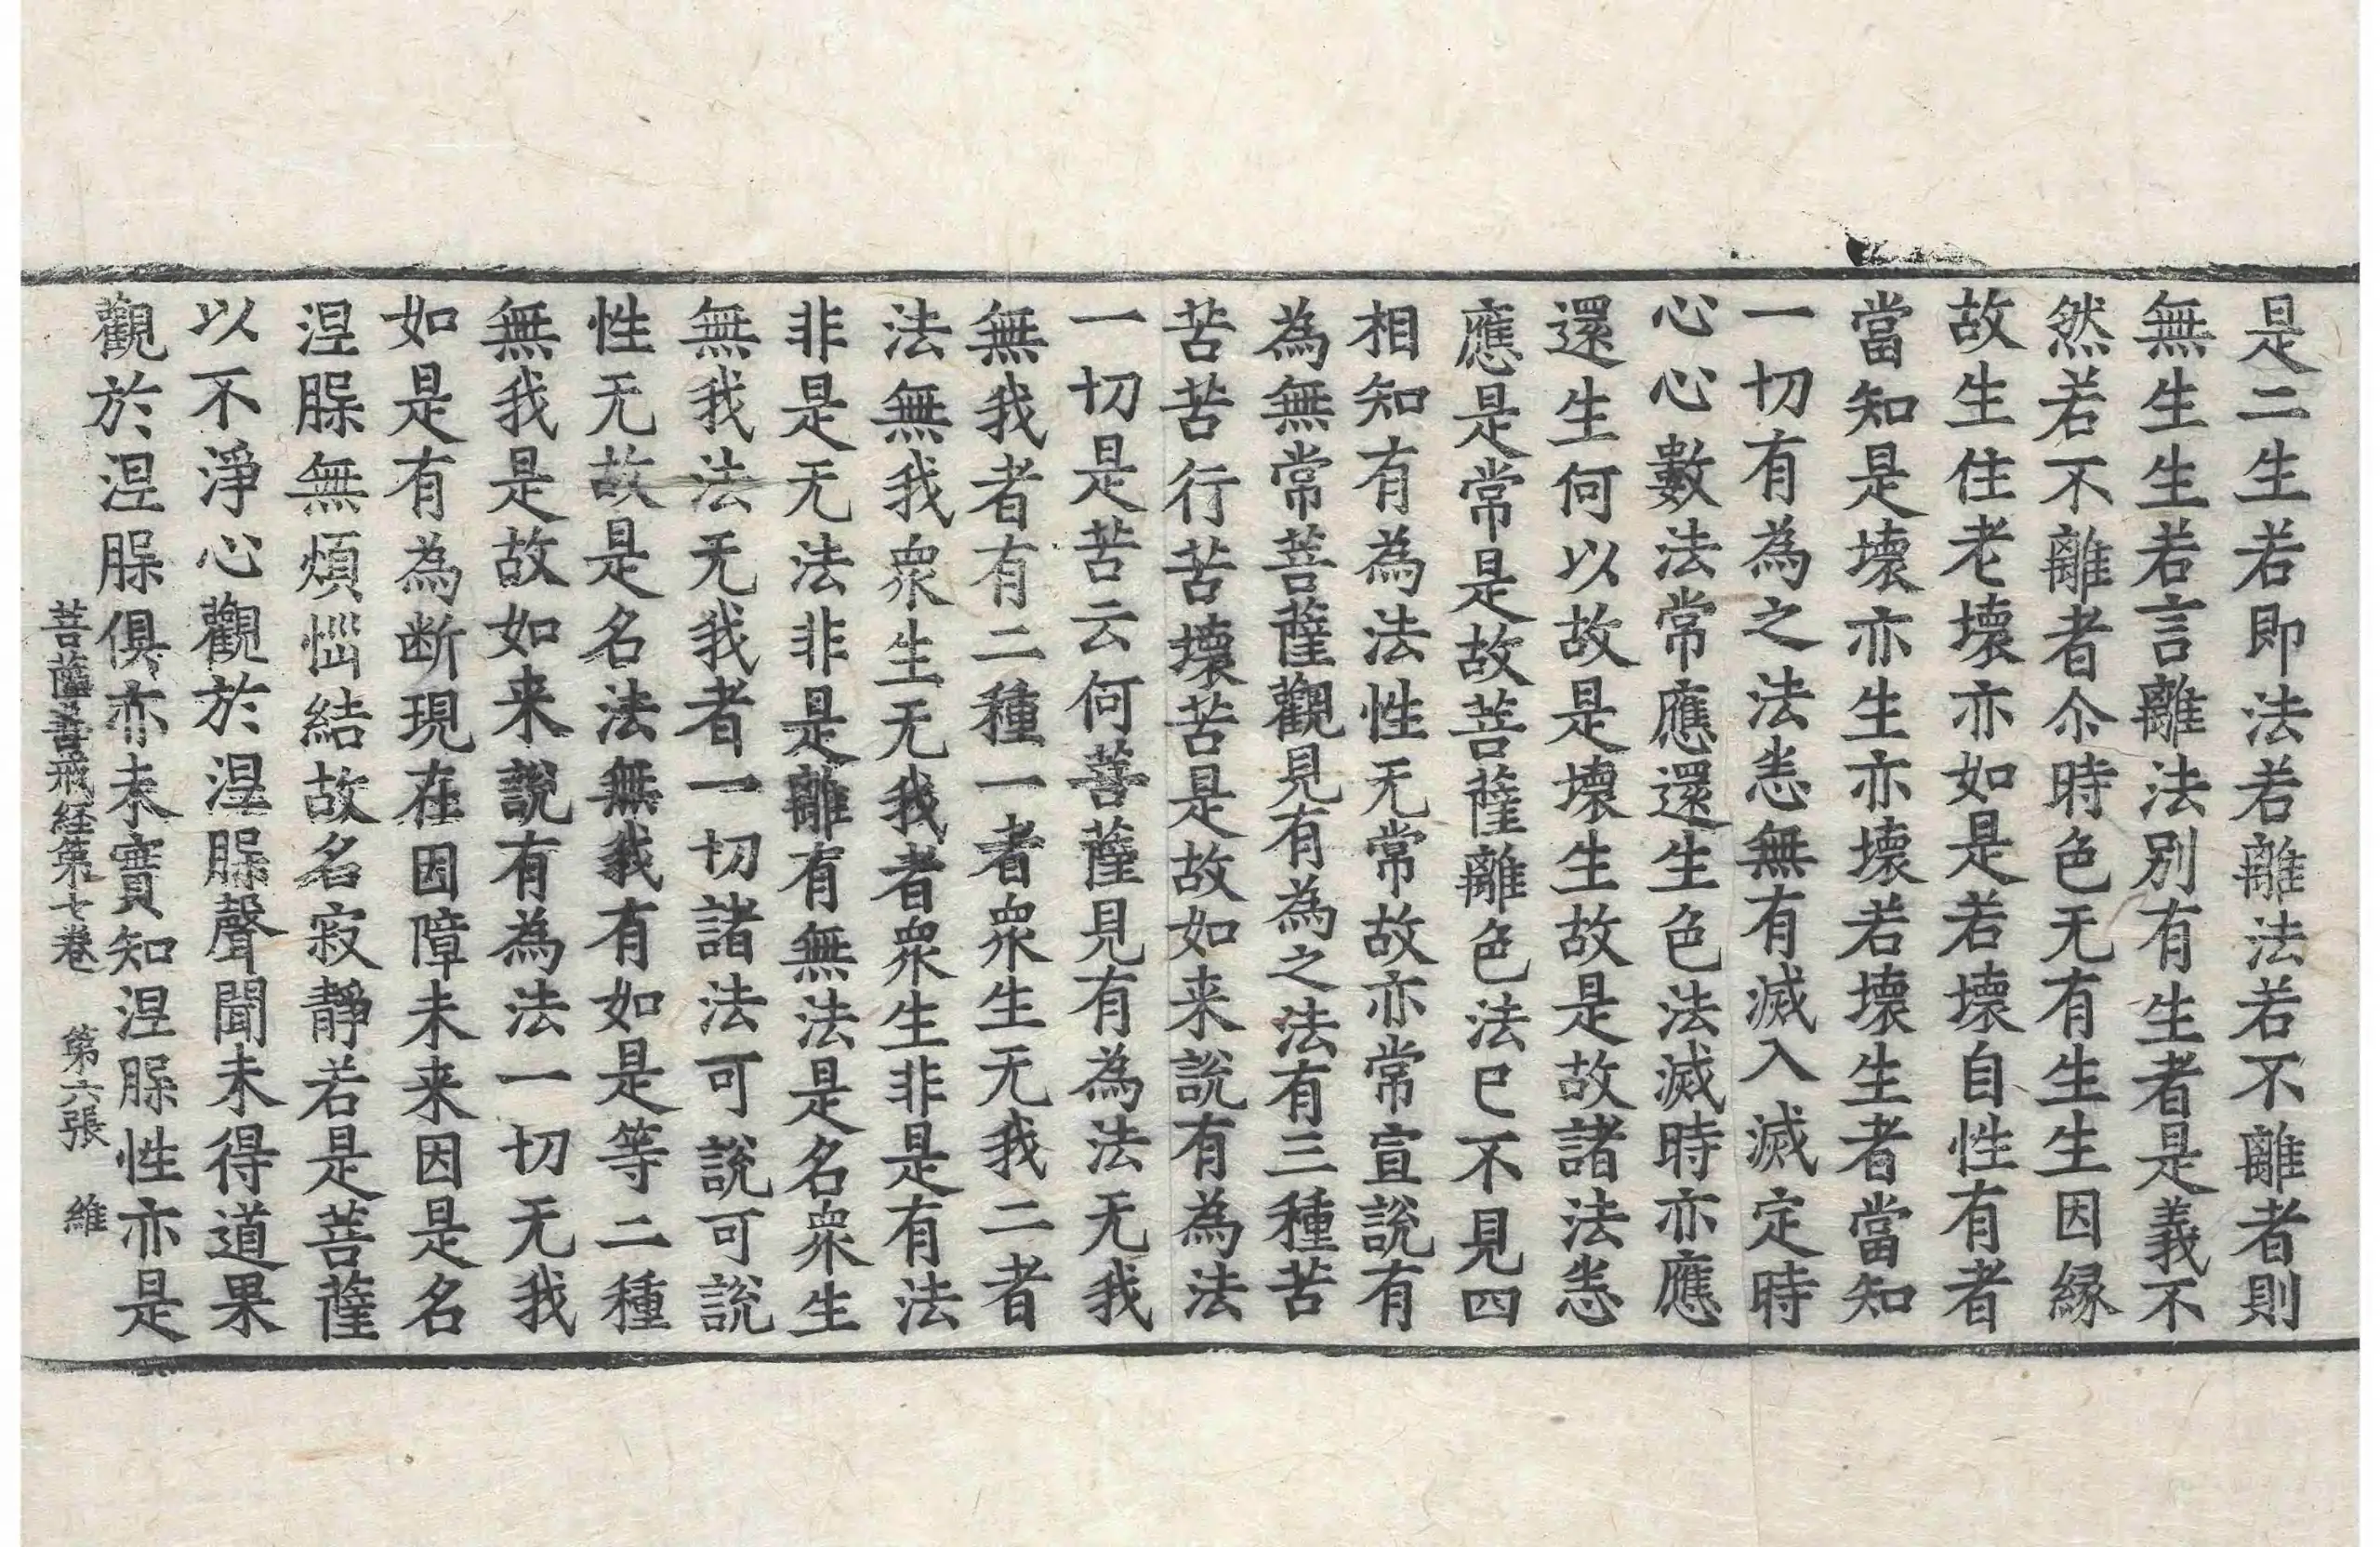 是二生若即法若離法若不離者則
無生生若言離法別有生者是義不
然若不離者尒時色无有生生因緣
故生住老壞亦如是若壞自性有者
當知是壞亦生亦壞若壞生者當知
一切有為之法恙無有滅入滅定時
心心數法常應還生色法滅時亦應
還生何以故是壞生故是故諸法恙
應是常是故菩薩離色法已不見四
相知有為法性无常故亦常宣說有
為無常菩薩觀見有為之法有三種苦
苦苦行苦壞苦是故如来說有為法
一切是苦云何菩薩見有為法无我
無我者有二種一者衆生无我二者
法無我衆生无我者衆生非是有法
非是无法非是離有無法是名衆生
無我法无我者一切諸法可說可說
性无故是名法無我有如是等二種
無我是故如来說有為法一切无我
如是有為断現在因障未来因是名
涅槃無煩惱結故名寂靜若是菩薩
以不淨心觀於涅槃聲聞未得道果
觀於涅槃俱亦未實知涅槃性亦是
菩薩善戒経第七巻 第六張 維